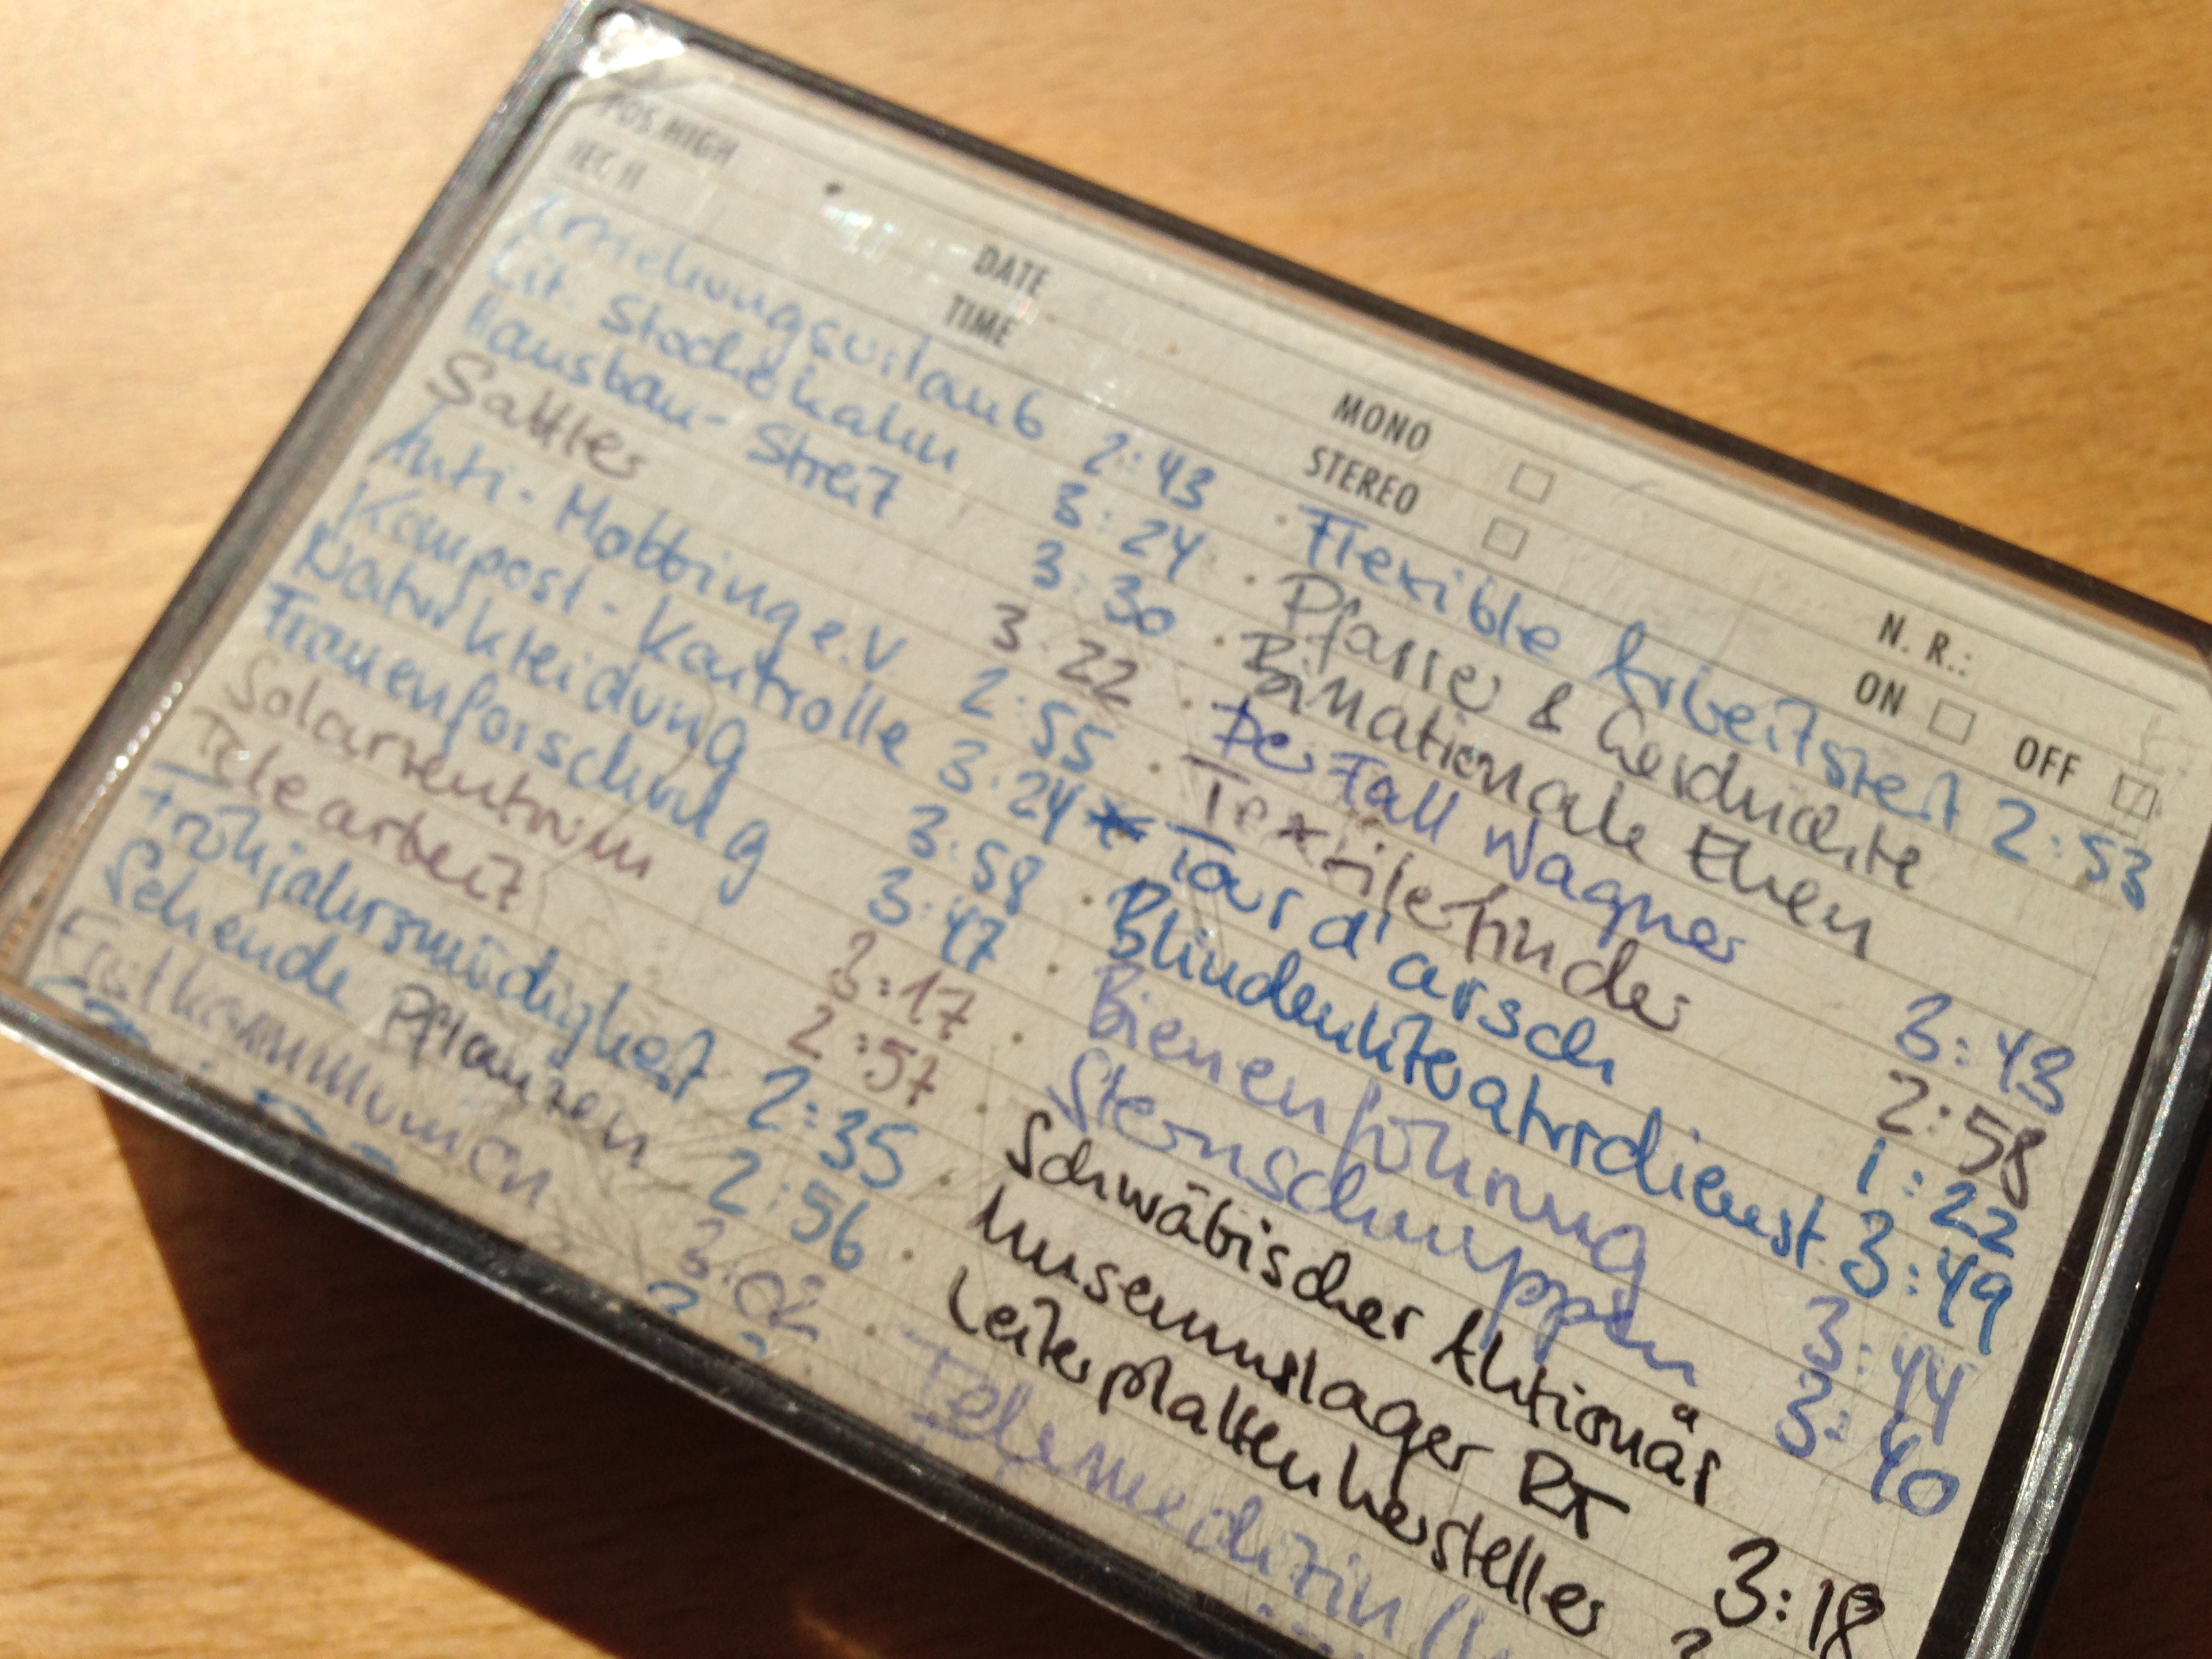 POS. HIGH
IEC II
DATE
TIME
MONO
STEREO
N. R.:
ON OFF
Erziehungsurlaub 2:43
Lit. Stocherkahn 3:24
Hausbau-Streit 3:30
Sattler 3:22
Anti-Mobbing e.V. 2:55
Kompost-Kontrolle 3:24
Naturkleidung 3:58
Frauenforschung 3:47
Solarzentrum 3:17
Telearbeit 2:57
Frühjahrsmüdigkeit 2:35
Sehende Pflanzen 2:56
Erstkommunion
Flexible Arbeitszeit 2:53
Pfarrer & Geschichte
Binationale Ehen
Der Fall Wagner
Textilerfinder 3:43
Tour d'arsch 2:58
Blindenliteraturdienst 1:22
Bienenführung 3:49
Sternschnuppen 3:44
Schwäbischer Aktionär 3:40
Museumslager RT
Leiterplattenhersteller 3:18
Telemedizin